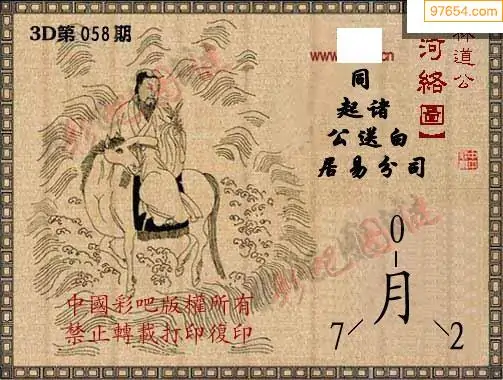 97654.com
3D第058期
林道公
河絡圖】
www.
同
起诸
公送白
居易分司
0
月
7 2
中國彩吧版權所有
禁止轉載打印復印